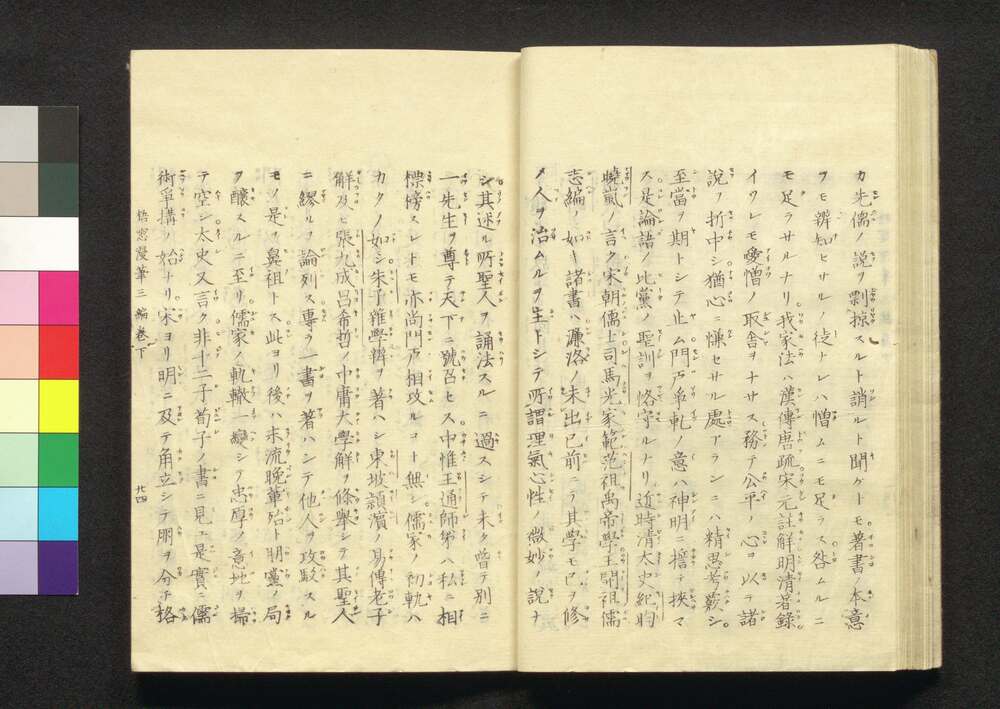 カ先儒ノ説ヲ剽掠スルト誚ルト聞ケトモ著書ノ本意
ヲモ辨知セサル徒ナレハ憎ムニモ足ラス咎ムルニ
モ足ラサルナリ我家法ハ漢傳唐疏宋元註觧明清著錄
イツレモ愛憎ノ取舎ヲナサス務テ公平ノ心ヲ以テ諸
說ヲ折中シ猶心ニ慊セサル處アラシニハ精思考覈シ
至當ヲ期トシテ止ム門戸争軋ノ意ハ神明ニ擔テ挾マ
ス是論語ノ比黨ノ聖訓ヲ恪守ルナリ近時清太史紀昀
曉嵐ノ言ク宋朝儒士司馬光家範范祖禹帝學王開祖儒
志編ノ如ノ諸書ハ濂洛ノ未出已前ニテ其學モ已ヲ修
メ人ヲ治ムルヲ主トシテ所謂理氣心性ノ微妙ノ說ナ
シ其述ル所聖人ヲ誦法スルニ過スシテ未タ曾テ別ニ
一先生ヲ尊テ天下ニ號召セス中惟王通師弟ハ私ニ相
標榜スレトモ亦尚門戸相攻ルコト無シ儒家ノ初軌ハ
カクノ如シ朱子雜學辨ヲ著ハシ東坡潁濱ノ易傳老子
解及ヒ張九成呂希哲ノ中庸大學解ヲ條舉シテ其聖人
ニ繆ルヲ論列ス專ラ一書ヲ著ハシテ他人ヲ攻駁スル
モノ是ヲ鼻祖トス此ヨリ後ハ末流晩輩殆ト明黨ノ局
ヲ釀スルニ至リ儒家ノ軌轍一變シテ忠厚ノ意地ヲ掃
テ空シ太史又言ク非十二子荀子ノ書ニ見ユ是實ニ儒
術爭搆ノ始ナリ宋ヨリ明ニ及テ角立シテ朋ヲ分チ格
梧窓漫筆三編卷下
廿四